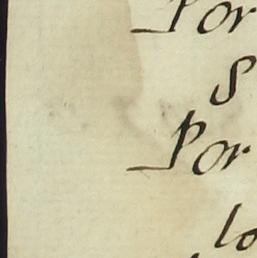 Por
S
Por
lo